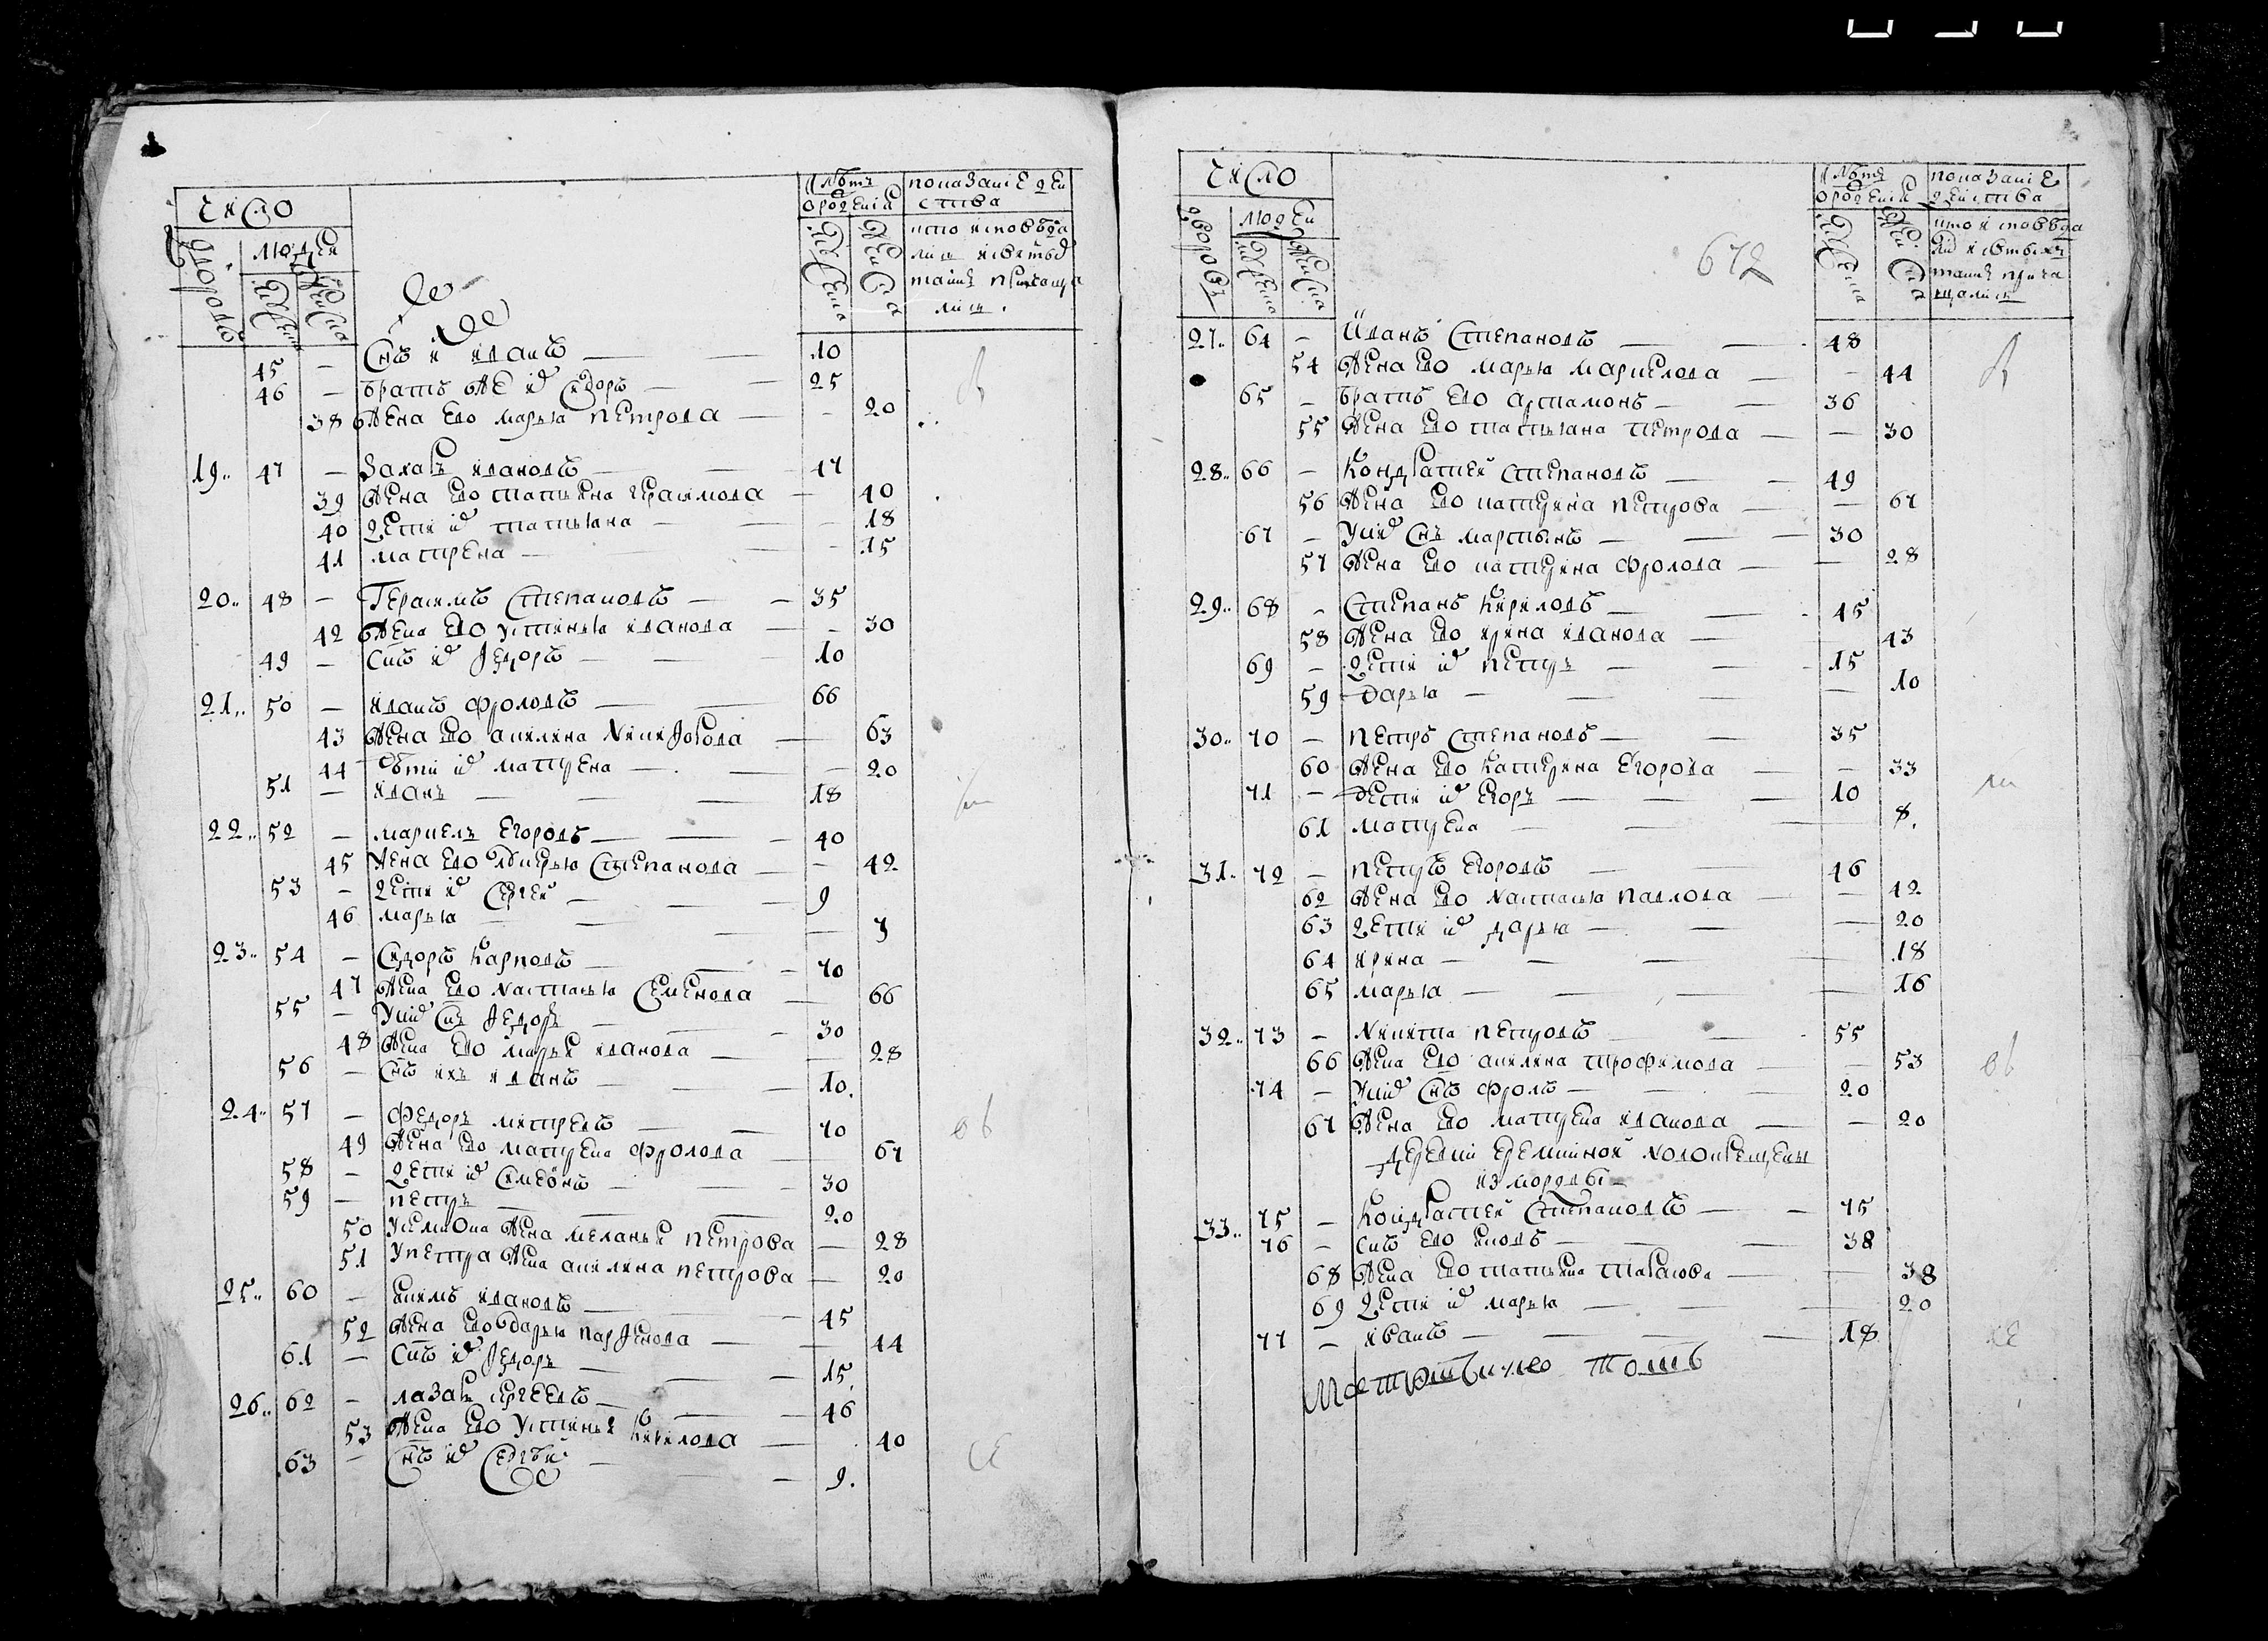 число
дворовъ
людей
мужеска
женска
лѣта
о рожденіи
мужеска
женска
показаніе дей
ства
кто исповѣда
лись и святыхъ
таинъ приобща
лись.
45 — Снъ и иванъ — 10
46 — братъ же ихъ сидоръ — 25
38 жена ево марья петрова — 20
19 47 — Захаръ ивановъ — 47
39 жена ево татьяна герасимова — 40
40 дети ихъ татьяна — 18
41 матрена — 15
20 48 — Герасимъ Степановъ — 35
42 жена ево устинья иванова — 30
49 — Снъ ихъ Ѳедоръ — 10
21 50 — иванъ фроловъ — 66
43 жена ево акилина Никифорова — 63
44 дѣти ихъ матрена — 20
51 — иванъ — 18
22 52 — маркелъ Егоровъ — 40
45 жена ево Степанова — 42
53 — дети ихъ Сергей — 9
46 марья — 7
23 54 — Сидоръ Карповъ — 70
47 жена ево Настасья Семенова — 66
55 — У них Снъ Ѳедоръ — 30
48 жена ево марья иванова — 28
56 — Снъ ихъ иванъ — 10
24 57 — Федоръ митревъ — 70
49 жена ево матрена фролова — 67
58 — дети ихъ Симеонъ — 30
59 — петръ — 20
50 У симиона жена меланья петрова — 28
51 У петра жена акилина петрова — 20
25 60 — екимъ ивановъ — 45
52 жена ево дарья парѲенова — 44
61 — Снъ ихъ Ѳедоръ — 15
26 62 — лазарь сргеевъ — 46
53 жена ево устинья Кирилова — 40
63 — Снъ ихъ Сергѣй — 9
число
дворовъ
людей
мужеска
женска
672
лѣта
о рожденіи
мужеска
женска
показаніе
действа
кто исповѣда
лись и святыхъ
таинъ прича
щались
27 64 — Иванъ Степановъ — 48
54 жена ево марья маркелова — 44
65 — братъ ево артамонъ — 36
55 жена ево татьяна петрова — 30
28 66 — Кондратей степановъ — 49
56 жена ево катерина петрова — 67
67 — У них Снъ мартынъ — 30
57 жена ево катерина фролова — 28
29 68 — Степанъ Кириловъ — 45
58 жена ево ирина иванова — 43
69 — дети ихъ петръ — 15
59 дарья — 10
30 70 — петръ степановъ — 35
60 жена ево Катерина Егорова — 33
71 — дети ихъ Егоръ — 10
61 матрена — 8
31 72 — петръ Егоровъ — 46
62 жена ево Настасья павлова — 42
63 дети ихъ дарья — 20
64 ирина — 18
65 марья — 16
32 73 — Никита петровъ — 55
66 жена ево акилина трофимова — 53
74 — У них Снъ фролъ — 20
67 жена ево матрена иванова — 20
деревни новокрещены
из мордвы
33 75 — Кондратей Степановъ — 75
76 — Снъ ево — 38
68 жена ево татьяна тарасова — 38
69 дети ихъ марья — 20
77 — иванъ — 18